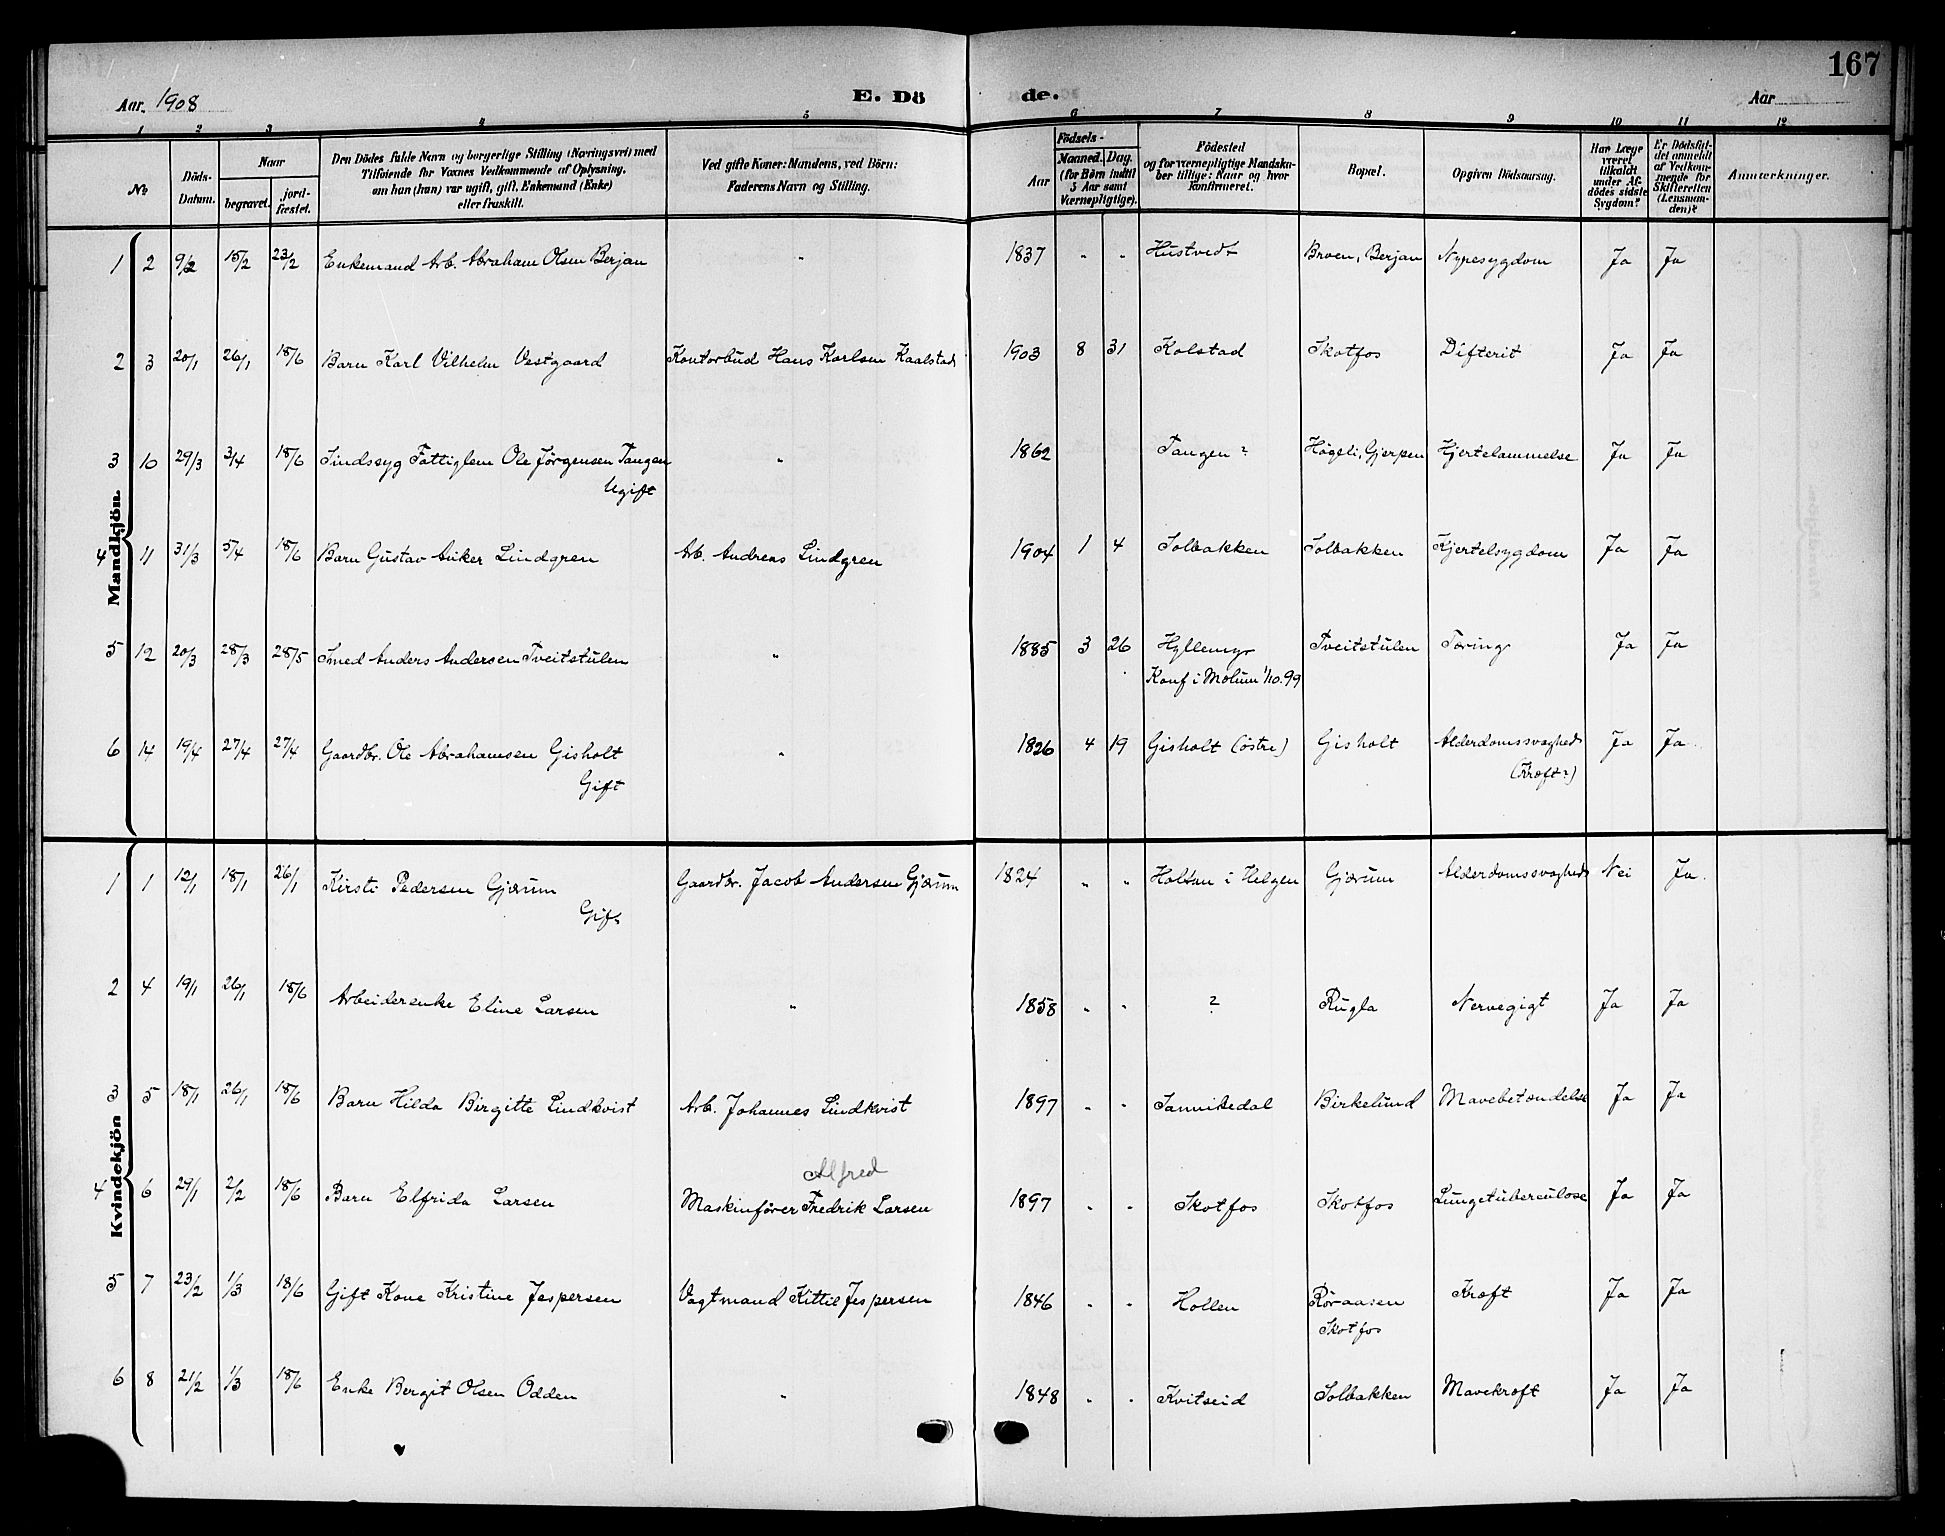 167
Aar. 1908
E. Dö
de.
Aar
1 2 3 4 5 6 7 8 9 10 11 12
No
Döds-Datum.
Naar
begravet.
jord-fæstet.
Den Dödes fulde Navn og borgerlige Stilling (Næringsvei) med
Tilföiende for Voxnes Vedkommende af Oplysning,
om han (hun) var ugift, gift, Enkemand (Enke)
eller fraskilt.
Ved gifte Koner: Mandens, ved Börn:
Faderens Navn og Stilling.
Födsels-
Aar
Maaned. Dag.
(for Börn indtil
5 Aar samt
Værnepligtige).
Födested
og for værnepligtige Mandska-
ber tillige: Naar og hvor
konfirmeret.
Bopæl.
Opgiven Dödsaarsag.
Har Læge
været
tilkaldt
under Af-
dödes sidste
Sygdom?
Er Dödsfal-
det anmeldt
af Vedkom-
mende for
Skifteretten
(Lensman-
den)?
Anmærkninger.
Mandkjön
1 2 9/2 15/2 23/2 Enkemand Arb. Abraham Olsen Berjan " 1837 " " Hustvedt Broen, Berjan Nyresygdom Ja Ja
2 3 20/1 26/1 18/6 Barn Karl Vilhelm Vestgaard Kontorbud Hans Karlsen Kaalstad 1903 8 31 Kolstad Skotfos Difterit Ja Ja
3 10 29/3 3/4 18/6 Sindssyg Fattiglem Ole Jörgensen Tangen " 1862 Tangen? Högeli, Gjerpen Hjertelammelse Ja Ja
Ugift
4 11 31/3 5/4 18/6 Barn Gustav Anker Lindgren Arb. Andreas Lindgren 1904 1 4 Solbakken Solbakken Kjertelsygdom Ja Ja
5 12 20/3 28/3 28/5 Smed Anders Andersen Tveitstulen " 1885 3 26 Hyllemyr Tveitstulen Tæring Ja Ja
Konf i Molum 1/10.99
6 14 19/4 27/4 27/4 Gaardbr. Ole Abrahamsen Gisholt " 1826 4 19 Gisholt (östre) Gisholt Alderdomssvaghed Ja Ja.
Gift (Kræft?)
Kvindekjön
1 1 12/1 18/1 26/1 Kirsti Pedersen Gjærum Gaardbr. Jacob Andersen Gjærum 1824 " " Holtan i Helgen Gjærum Alderdomssvaghed Nei Ja.
Gift
2 4 19/1 26/1 18/6 Arbeiderenke Eline Larsen " 1858 " " ? Rugla Nervegigt Ja Ja
3 5 18/1 26/1 18/6 Barn Hilda Birgitte Lindkvist Arb. Johannes Lindkvist 1897 " " Sannikedal Birkelund Mavebetændelse Ja Ja
Alfred
4 6 29/1 2/2 18/6 Barn Elfrida Larsen Maskinförer Fredrik Larsen 1897 " " Skotfos Skotfos Lungetuberculose Ja Ja
5 7 23/2 1/3 18/6 Gift Kone Kristine Jespersen Vagtmand Kittil Jespersen 1846 " " Hollen Röraasen Kræft Ja Ja
Skotfos
6 8 21/2 1/3 18/6 Enke Bergit Olsen Odden " 1848 " " Kvitseid Solbakken Mavekræft Ja Ja